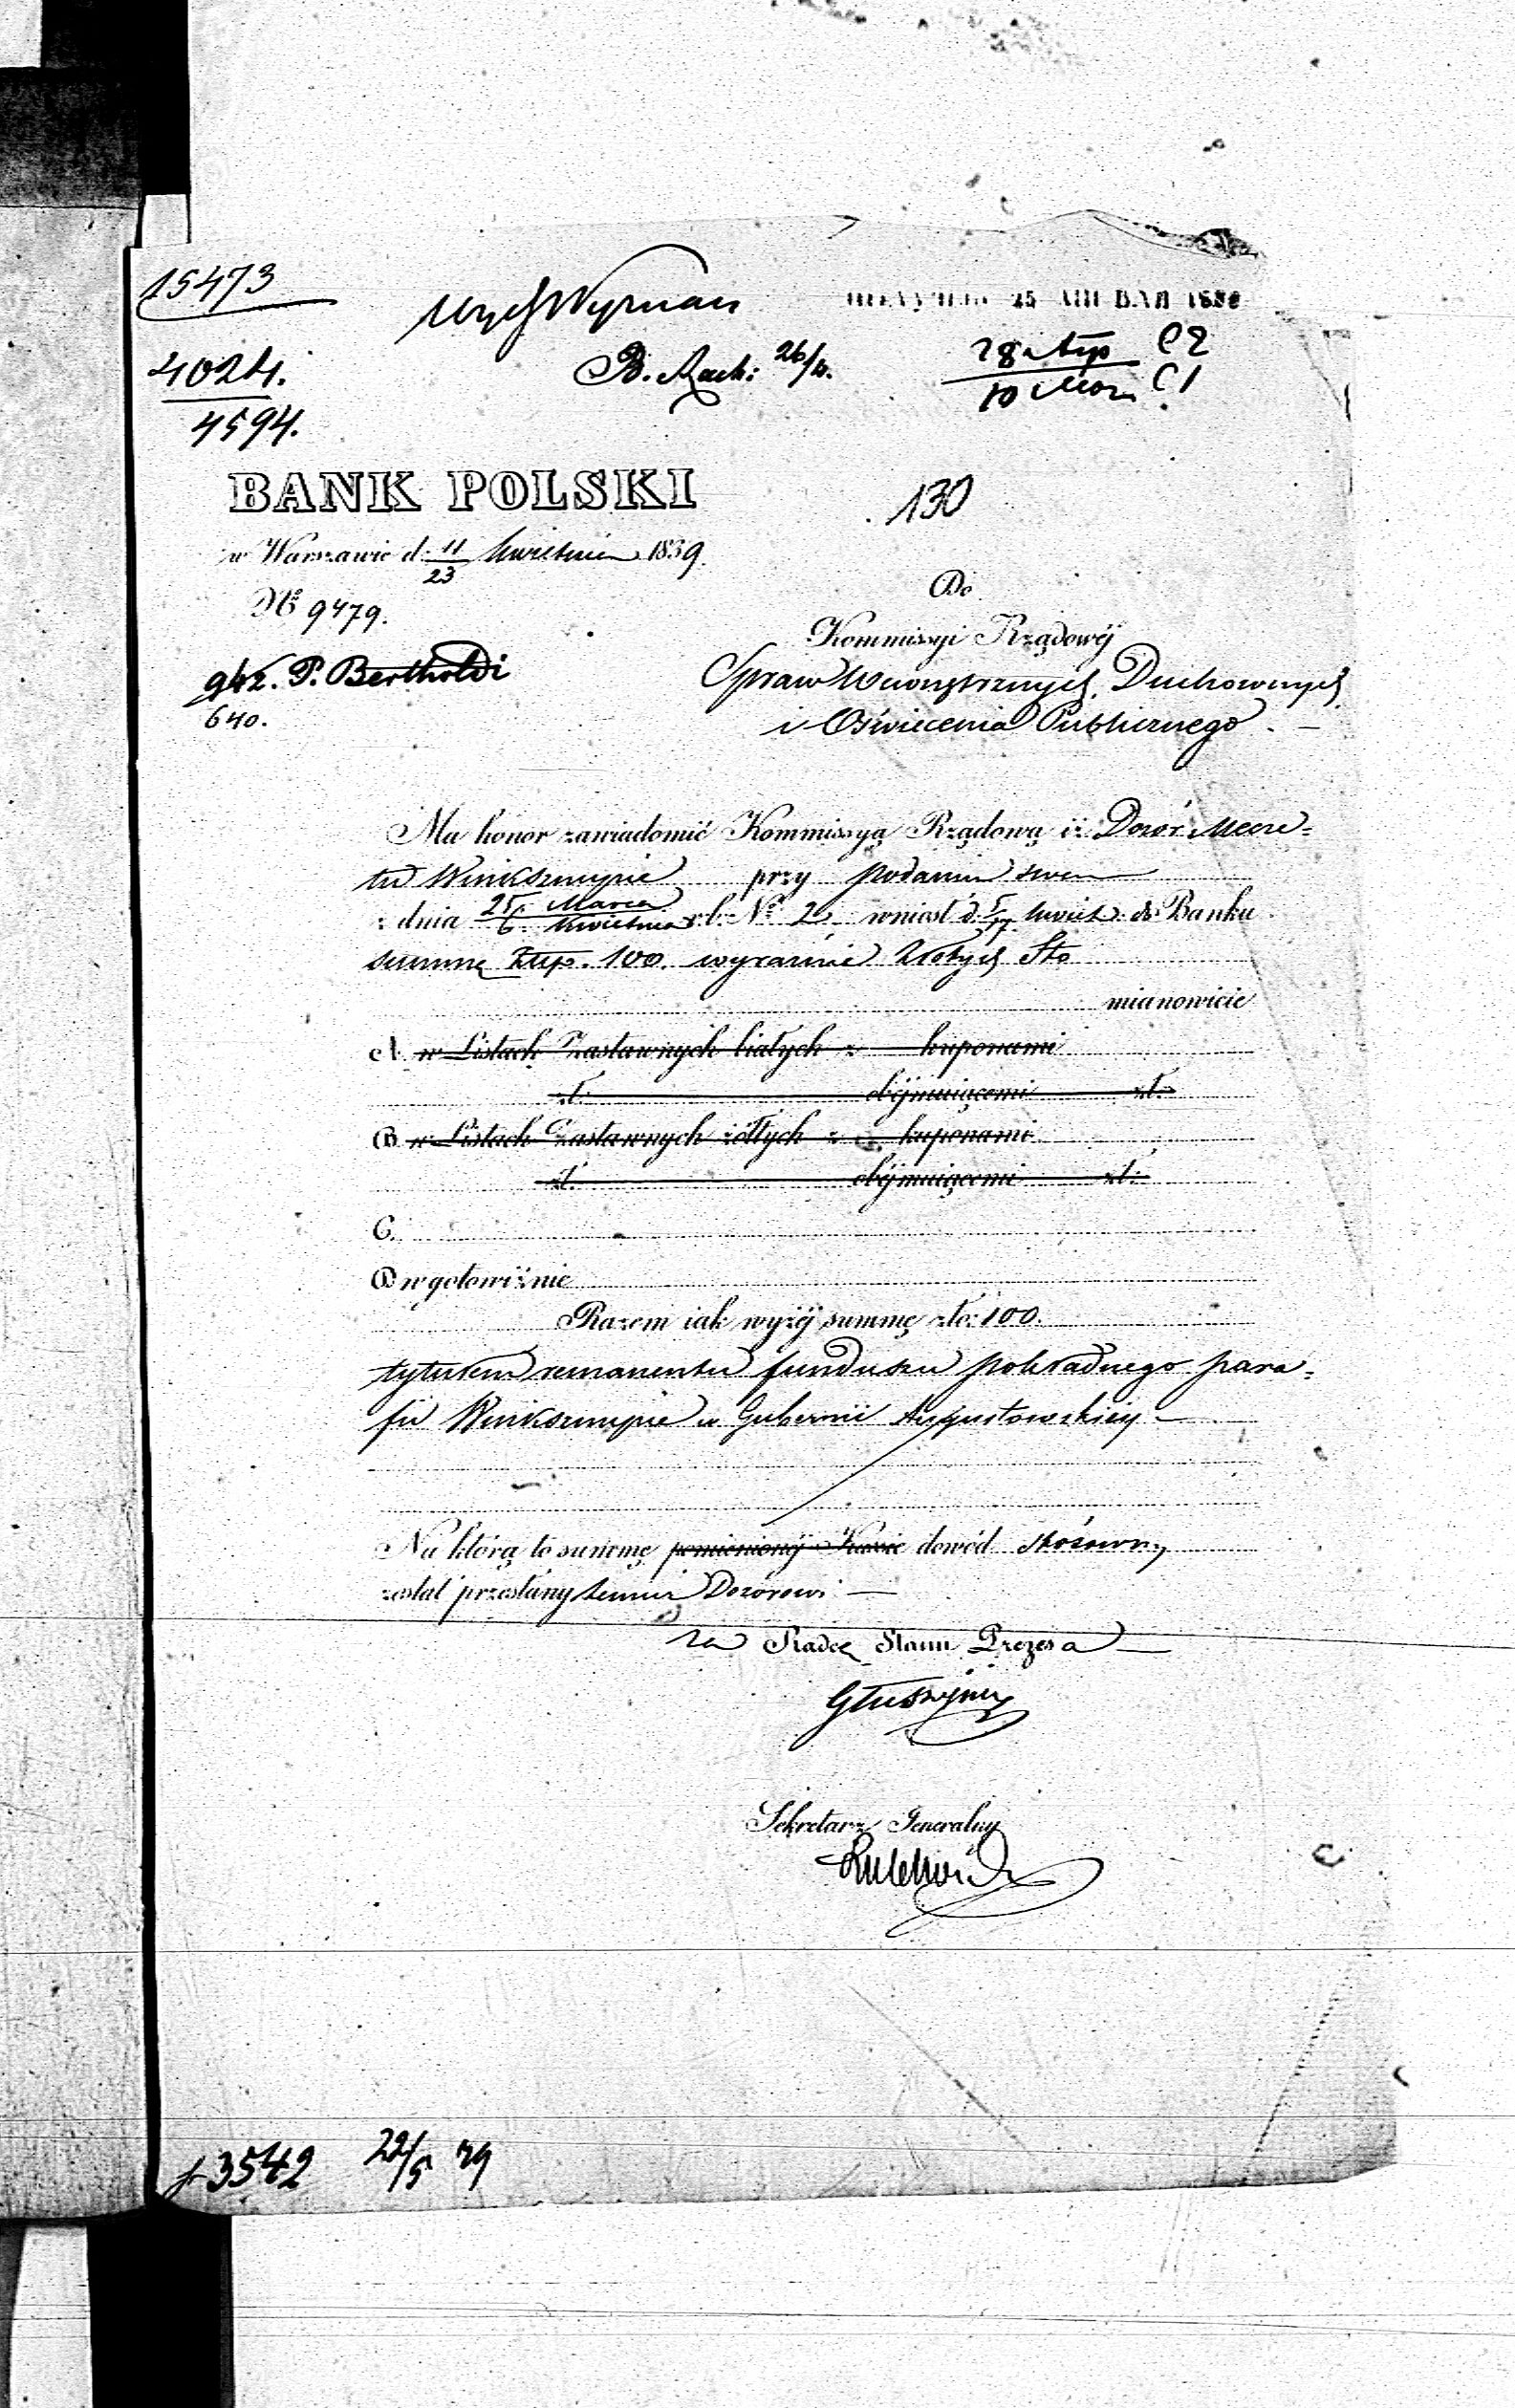 15473
4024.
4594.
B. Rach: 26/4.
10
BANK POLSKI
130
w Warszawie d. 11/23 kwietnia 1839.
Nº 9479.
Do
Kommissyi Rządowéj
942. P. Bertholdi
640.
Spraw Wewnętrznych, Duchownych
i Oświecenia Publicznego. —
Ma honor zawiadomić Kommissyą Rządową iż Dozór Mecze-
tu Winksznupie przy podaniu swem
z dnia 25 Marca/6 Kwietnia r. b. Nº 2 wniosł d. 5/17 kwiet. do Banku
summę Złtp. 100. wyraźnie Złotych Sto
mianowicie
A. w Listach Zastawnych białych z kuponami
zł. obéjmuiącemi zł.
B w Listach Zastawnych żółtych z kuponami
zł. obéjmuiącemi zł.
C.
D w gotowiźnie
Razem iak wyżéj summę złp. 100.
tytułem remanentu funduszu pokładnego para-
fii Winksznupie w Gubernii Augustowskiey —
Na którą to summę pomienionéj Kassie dowód stósowny
został przesłany temuż Dozorowi —
za Radcę Stanu Prezesa —
Sekretarz Generalny
3542 22/5 39